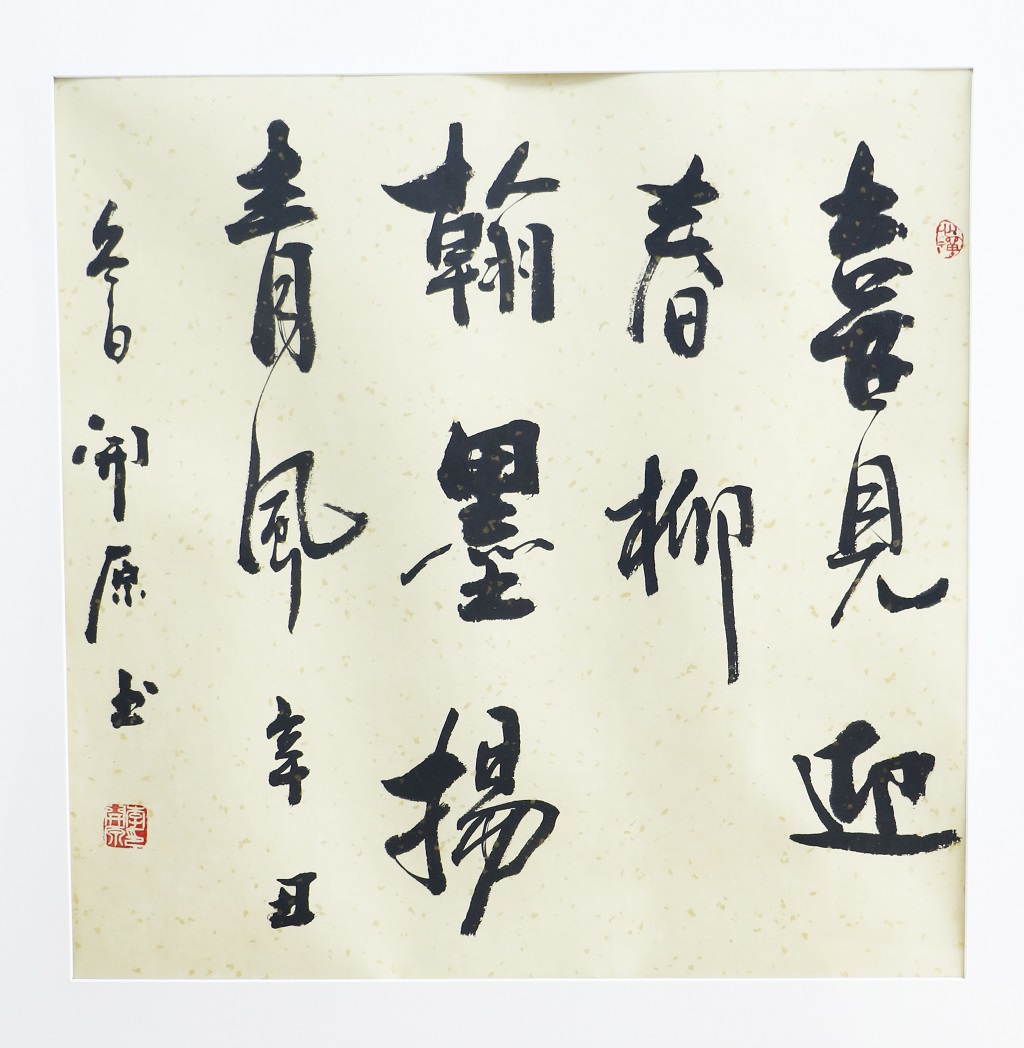 喜見迎
春柳
翰墨揚
青風 辛丑
冬月 開原书